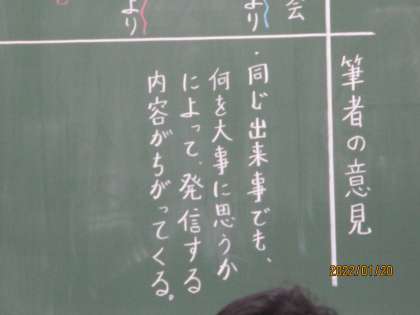 会
より
より
筆者の意見
・同じ出来事でも、
何を大事に思うか
によって、発信する
内容がちがってくる。
2022/01/20